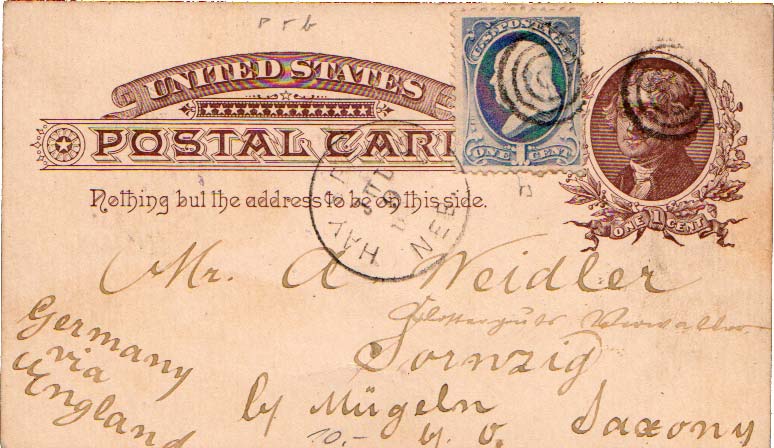 UNITED STATES
POSTAL CARD
Nothing but the address to be on this side.
U.S. POSTAGE
ONE CENT
1
ONE 1 CENT
HAY
NEB
Mr. A. Weidler
Klosterguts Verwalter
Sornzig
by Mügeln
Saxony
Germany
via
England
10.-